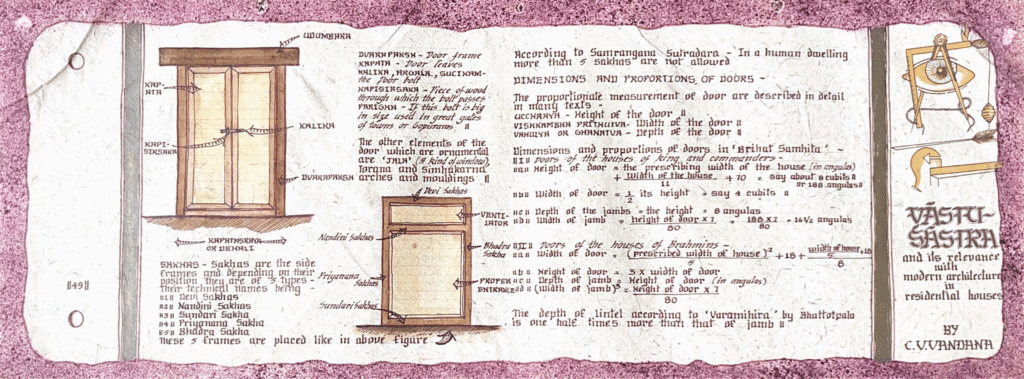 ||49||
UDUMBARA
KAP-
ATA
KALIKA
KAPI-
SIRSAKA
DVARAPAKSH
KAPATASRAYA
OR DEHALI
SAKHAS - Sakhas are the side
frames and depending on their
position they are of 5 types -
Their technical names being
||1|| Devi Sakhas
||2|| Nandini Sakhas
||3|| Sundari Sakha
||4|| Priyanana Sakha
||5|| Bhadra Sakha
These 5 frames are placed like in above figure
DVARAPAKSH - Door frame
KAPATA - Door leaves
KALIKA, ARGALA, SUCIKAM-
the Door bolt
KAPISIRSAKA - Piece of wood
through which the bolt passes
PARIGHA - If this bolt is big
in size used in great gates
of towns or Gopurams ||
The other elements of the
door which are ornamental
are 'JALA' (A kind of window),
Torana and Simhakarna
arches and mouldings ||
Devi Sakhas
VENTI-
LATOR
Nandini Sakhas
Bhadra
Sakha
Priyanana
Sakhas
PROPER
ENTRANCE
Sundari Sakhas
According to Samrangana Sutradara - In a human dwelling
more than 5 sakhas are not allowed
DIMENSIONS AND PROPORTIONS OF DOORS -
The proportionate measurement of door are described in detail
in many texts -
UCCHRAYA - Height of the door ||
VISHKAMBHA PRITHUTVA - Width of the door ||
VAHULYA OR GHANATVA - Depth of the door ||
Dimensions and proportions of doors in 'Brihat Samhita' -
||I|| Doors of the houses of King and commanders -
||a|| Height of door = the prescribing width of the house (in angulas)
+ width of the house + 70 = say about 8 cubits ||
11 or 188 angulas||
||b|| Width of door = 1/2 its height = say 4 cubits ||
||c|| Depth of the jambs = the height = 8 angulas
||d|| Width of jamb = height of door x 7 = 188 x 7 = 16½ angulas
80 80
||II|| Doors of the houses of Brahmins -
||a|| Width of door = (prescribed width of house)² + 18 + width of house + 18
5 8
||b|| Height of door = 3 x width of door
||c|| Depth of jamb = Height of door (in angulas)
||d|| (width of jamb)² = Height of door x 7
80
The depth of lintel according to 'Varamihira' by Bhattotpala
is one half times more than that of jamb ||
VĀSTU-
SĀSTRA
and its relevance
with
modern architecture
in
residential houses
BY
C.V.VANDANA